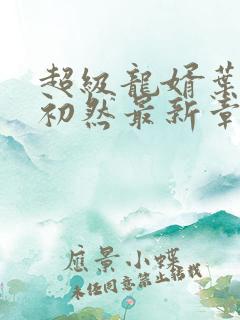 超級龍婿葉
初然最新章
應景小蝶
未经同意禁止转载